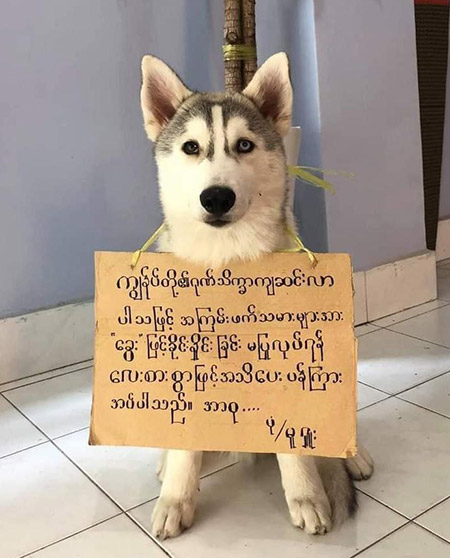 ကျွန်ုပ်တို့၏ဂုဏ်သိက္ခာကျဆင်းလာ
ပါသဖြင့် အကြမ်းဖက်သမားများအား
"ခွေး" ဖြင့်ခိုင်းနှိုင်း ခြင်း မပြုလုပ်ရန်
လေးစားစွာဖြင့်အသိပေး ပန်ကြား
အပ်ပါသည်။ အာဝု....
ပုံ/မူရှူး